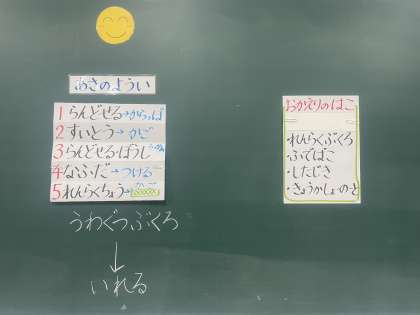 あさのようい
1 らんどせる→からっぽ
2 すいとう→かご
3 らんどせる・ぼうし
4 なふだ→つける
5 れんらくちょう→
うわぐつぶくろ
↓
いれる
おかえりのはこ
・れんらくぶくろ
・ふでばこ
・したじき
・きょうかしょ・のーと